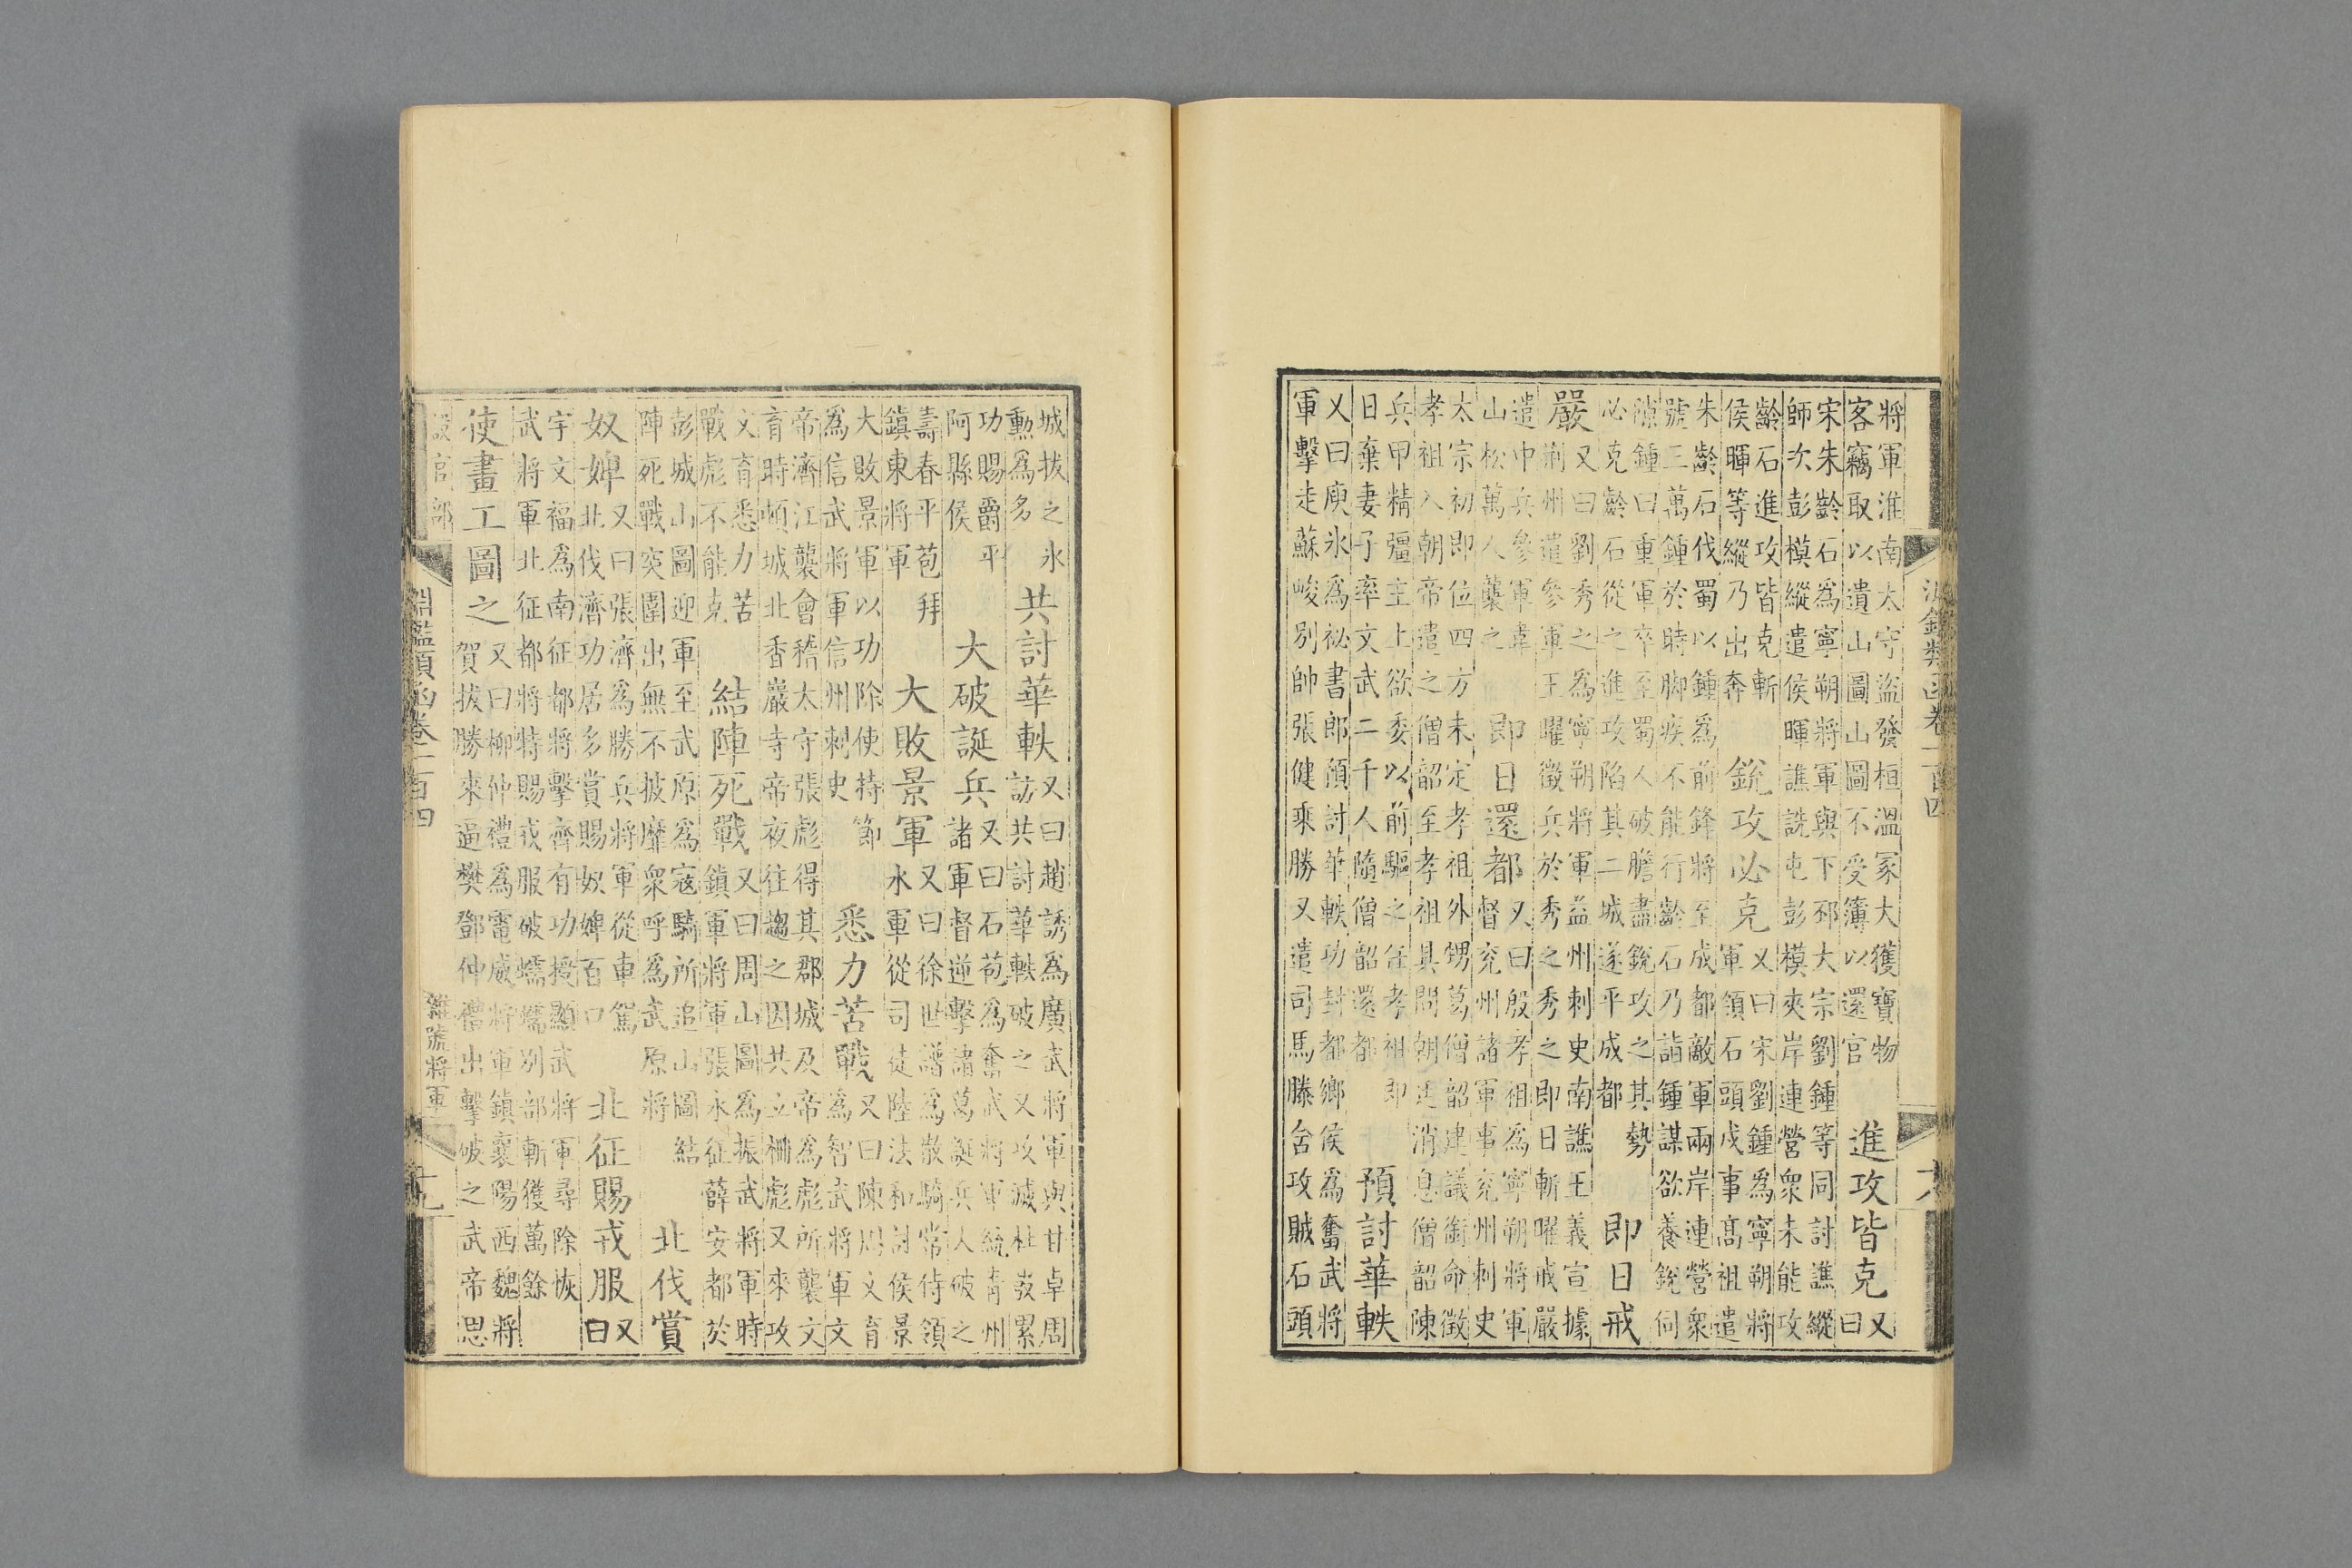 淵鑑類函卷一百四
將軍淮南太守盜發桓溫冢大獲寶物
客竊取以遺山圖山圖不受簿以還官
進攻皆克
又
曰
宋朱齡石為寧朔將軍與下邳大宗劉鍾等同討譙縱
師次彭模縱遣侯暉譙詵屯彭模夾岸連營衆未能攻
齡石進攻皆克斬
侯暉等縱乃出奔
銳攻必克
又曰宋劉鍾為寧朔將
軍領石頭戍事髙祖遣
朱齡石伐蜀以鍾為前鋒將至成都敵軍兩岸連營衆
號三萬鍾於時脚疾不能行齡石乃詣鍾謀欲養銳伺
隙鍾曰重軍卒至蜀人破膽盡銳攻之其勢
必克齡石從之進攻陷其二城遂平成都
即日戒
嚴
又曰劉秀之為寧朔將軍益州刺史南譙王義宣據
荆州遣參軍王曜徵兵於秀之秀之即日斬曜戒嚴
遣中兵參軍韋
山松萬人襲之
即日還都
又曰殷孝祖為寧朔將軍
督兖州諸軍事兖州刺史
太宗初即位四方未定孝祖外甥葛僧韶建議銜命徵
孝祖入朝帝遣之僧韶至孝祖具問朝廷消息僧韶陳
兵甲精彊主上欲委以前驅之任孝祖即
日棄妻子率文武二千人隨僧韶還都
預討華軼
又曰庾氷為祕書郎預討華軼功封都鄉侯為奮武將
軍擊走蘇峻別帥張健乘勝又遣司馬滕含攻賊石頭
城拔之氷
勳為多
共討華軼
又曰趙誘為廣武將軍與甘卓周
訪共討華軼破之又攻滅杜弢累
功賜爵平
阿縣侯
大破誕兵
又曰石苞為奮武將軍統青州
諸軍督逆擊諸葛誕兵人破之
壽春平苞拜
鎮東將軍
大敗景軍
又曰徐世譜為散騎常侍領
水軍從司徒陸法和討侯景
大敗景軍以功除使持節
為信武將軍信州刺史
悉力苦戰
又曰陳周文育
為智武將軍文
帝濟江襲會稽太守張彪得其郡城及帝為彪所襲文
育時頓城北香巖寺帝夜往趨之因共立柵彪又來攻
文育悉力苦
戰彪不能克
結陣死戰
又曰周山圖為振武將軍時
鎮軍將軍張永征薛安都於
彭城山圖迎軍至武原為寇騎所追山圖結
陣死戰突圍出無不披靡衆呼為武原將
北伐賞
奴婢
又曰張濟為勝兵將軍從車駕
北伐濟功居多賞賜奴婢百口
北征賜戎服
又
曰
宇文福為南征都將擊齊有功授顯武將軍尋除恢
武將軍北征都將特賜戎服破蠕蠕別部斬獲萬餘
使畫工圖之
又曰柳仲禮為電威將軍鎮襄陽西魏將
賀拔勝來逼樊鄧仲禮出擊破之武帝思
設官部
淵鑑類函卷一百四
雜號將軍